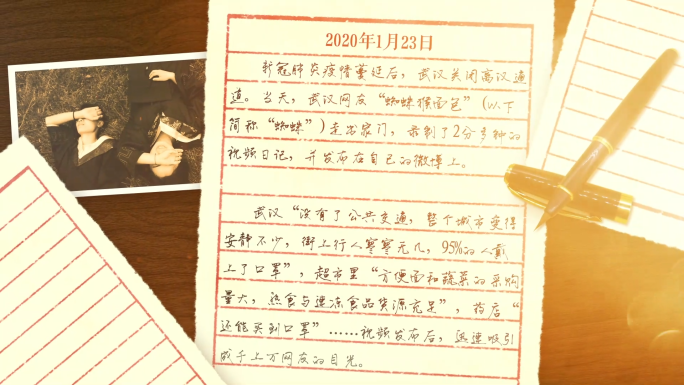 2020年1月23日
新冠肺炎疫情蔓延后，武汉关闭离汉通
道。当天，武汉网友“蜘蛛猴面包”(以下
简称“蜘蛛”)走出家门，录制了2分多钟的
视频日记，并发布在自己的微博上。
武汉“没有了公共交通，整个城市变得
安静不少，街上行人寥寥无几，95%的人戴
上了口罩”，超市里“方便面和蔬菜的采购
量大，熟食与速冻食品货源充足”，药店“
还能买到口罩”……视频发布后，迅速吸引
成千上万网友的目光。